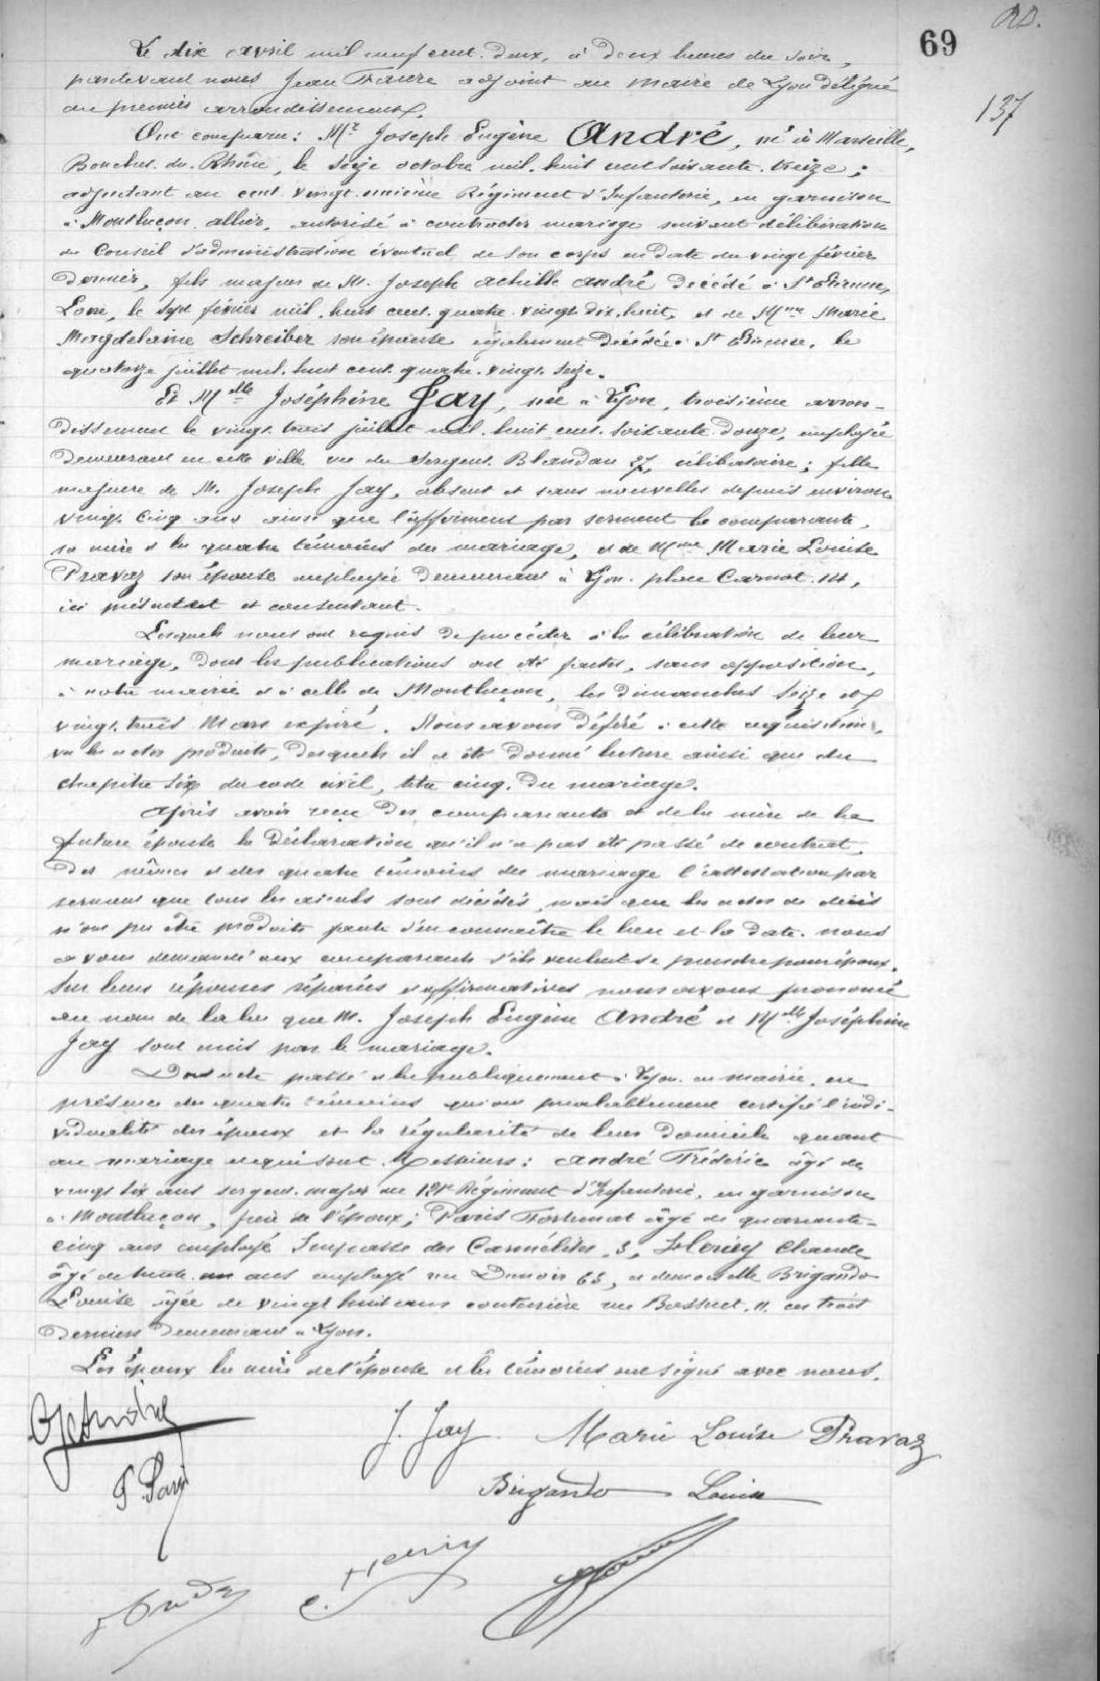 69
137
Le dix avril mil neuf cent deux, à deux heures du soir,
pardevant nous Jean Faure adjoint au maire de Lyon délégué
au premier arrondissement,
Ont comparu : Mr Joseph Eugène André, né à Marseille,
Bouches-du-Rhône, le seize octobre mil huit cent soixante-treize ;
adjudant au cent vingt-unième Régiment d'Infanterie, en garnison
à Montluçon, allier, autorisé à contracter mariage suivant délibération
du Conseil d'administration éventuel de son corps en date du vingt février
dernier, fils majeur de M. Joseph achille andré décédé à St Etienne,
Loire, le sept février mil huit cent quatre-vingt-dix-huit, et de Mme Marie
Magdelaine Schreiber son épouse également décédée à St Etienne, le
quatorze juillet mil huit cent quatre-vingt-seize.
Et Mlle Joséphine Jay, née à Lyon, troisième arron-
dissement le vingt-trois juillet mil huit cent soixante-douze, employée
demeurant en cette ville rue du Sergent Blandan 27, célibataire ; fille
majeure de M. Joseph Jay, absent et sans nouvelles depuis environ
vingt-cinq ans ainsi que l'affirment par serment la comparante,
sa mère et les quatre témoins du mariage, et de Mme Marie Louise
Pravaz son épouse employée demeurant à Lyon, place Carnot 14,
ici présente et consentant.
Lesquels nous ont requis de procéder à la célébration de leur
mariage, dont les publications ont été faites, sans opposition,
à notre mairie et à celle de Montluçon, les dimanches seize et
vingt-trois Mars expiré. Nous avons déféré à cette réquisition,
vu les actes produits, desquels il a été donné lecture ainsi que du
chapitre six du code civil, titre cinq, du mariage.
Après avoir reçu des comparants et de la mère de la
future épouse la déclaration qu'il n'a pas été passé de contrat,
des mêmes et des quatre témoins du mariage l'attestation par
serment que tous les aïeuls sont décédés, mais que les actes de décès
n'ont pu être produits faute d'en connaître le lieu et la date, nous
avons demandé aux comparants s'ils veulent se prendre pour époux.
Sur leurs réponses séparées et affirmatives nous avons prononcé
au nom de la loi que M. Joseph Eugène André et Mlle Joséphine
Jay sont unis par le mariage.
Dont acte passé et lu publiquement à Lyon en mairie, en
présence des quatre témoins qui ont préalablement certifié l'indi-
vidualité des époux et la régularité de leur domicile quant
au mariage et qui sont Messieurs : andré Fréderic âgé de
vingt-six ans sergent-major au 121e Régiment d'Infanterie, en garnison
à Montluçon, frère de l'époux ; Paris Fortunat âgé de quarante-
cinq ans employé Impasse des Carmélites, 3, Henry Claude
âgé de trente un ans employé rue Dunoir 65, et demoiselle Brigando
Louise âgée de vingt huit ans couturière rue Bossuet, 11, ces trois
derniers demeurant à Lyon.
Les époux la mère de l'épouse et les témoins ont signé avec nous.
J. Jay Marie Louise Pravaz
Brigando Louise
C. Henry